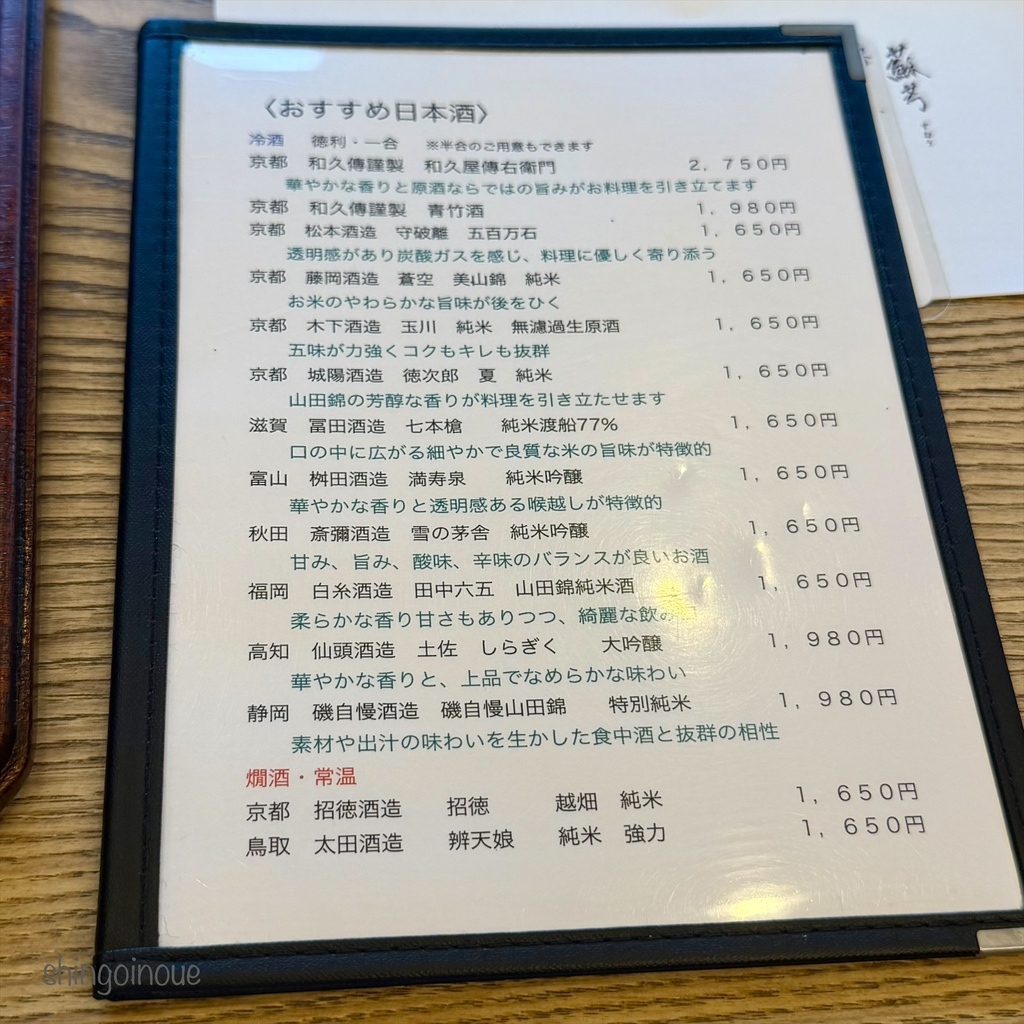 〈おすすめ日本酒〉
冷酒 徳利・一合 ※半合のご用意もできます
京都 和久傳謹製 和久屋傳右衛門 2,750円
華やかな香りと原酒ならではの旨みがお料理を引き立てます
京都 和久傳謹製 青竹酒 1,980円
京都 松本酒造 守破離 五百万石 1,650円
透明感があり炭酸ガスを感じ、料理に優しく寄り添う
京都 藤岡酒造 蒼空 美山錦 純米 1,650円
お米のやわらかな旨味が後をひく
京都 木下酒造 玉川 純米 無濾過生原酒 1,650円
五味が力強くコクもキレも抜群
京都 城陽酒造 徳次郎 夏 純米 1,650円
山田錦の芳醇な香りが料理を引き立たせます
滋賀 冨田酒造 七本槍 純米渡船77% 1,650円
口の中に広がる細やかで良質な米の旨味が特徴的
富山 桝田酒造 満寿泉 純米吟醸 1,650円
華やかな香りと透明感ある喉越しが特徴的
秋田 斎彌酒造 雪の茅舎 純米吟醸 1,650円
甘み、旨み、酸味、辛味のバランスが良いお酒
福岡 白糸酒造 田中六五 山田錦純米酒 1,650円
柔らかな香り甘さもありつつ、綺麗な飲み
高知 仙頭酒造 土佐 しらぎく 大吟醸 1,980円
華やかな香りと、上品でなめらかな味わい
静岡 磯自慢酒造 磯自慢山田錦 特別純米 1,980円
素材や出汁の味わいを生かした食中酒と抜群の相性
燗酒・常温
京都 招徳酒造 招徳 越畑 純米 1,650円
鳥取 太田酒造 辨天娘 純米 強力 1,650円
shingoinoue